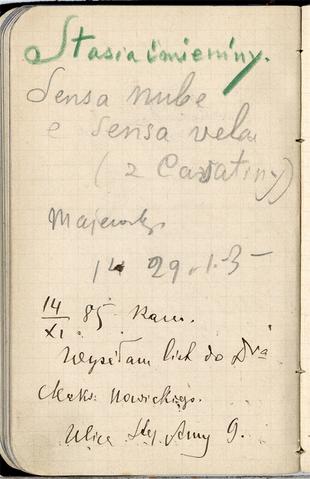 Stasia imieniny.
Sensa nube
e sensa vela
(z Cavatiny)
Majewsky
14 29.1.35
14/XI 85 Ram.
Wysyłam list do Dra
Maks. Nowickiego.
Ulica Stej Anny 9.